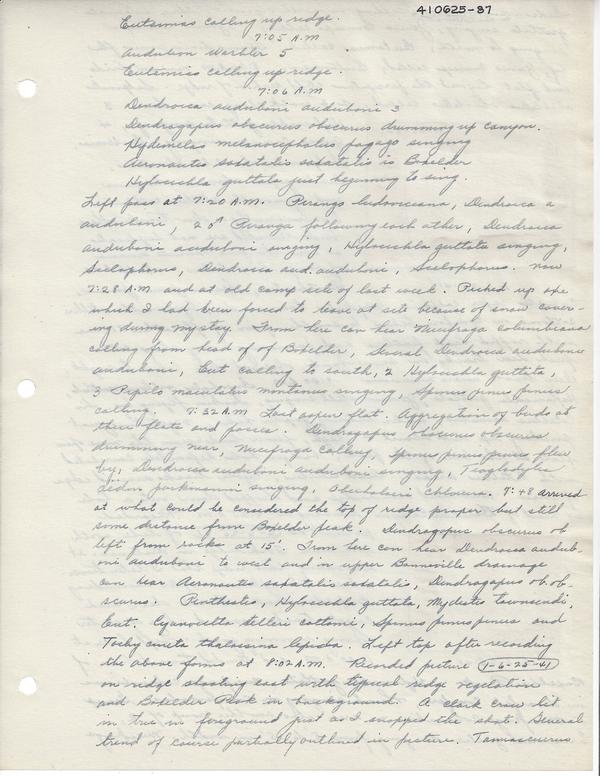 410625-37
Eutamias calling up ridge.
7:05 A.M
Audubon Warbler 5
Eutamias calling up ridge.
7:06 A.M
Dendroica auduboni auduboni 3
Dendragapus obscurus obscurus drumming up canyon.
Hydemelas melanocephalus papago singing
Aeronautes saxatalis saxatalis is Boxelder
Hylocichla guttata just beginning to sing.
Left pass at 7:20 A.M. Piranga ludoviciana, Dendroica a
auduboni, 2 ♂ Piranga following each other, Dendroica
auduboni auduboni singing, Hylocichla guttata singing,
Selophorus, Dendroica aud. auduboni, Selophorus. Now
7:28 A.M and at old camp site of last week. Picked up axe
which I had been forced to leave at site because of snow cover-
ing during my stay. From here can hear Nucifraga columbiana
calling from head of of Boxelder, Several Dendroica auduboni
auduboni, Eut calling to south, 2 Hylocichla guttata,
3 Pipilo maculatus montanus singing, Spinus pinus pinus
calling. 7:32 A.M Last aspen flat. Aggregation of birds at
these flats and passes. Dendragapus obscurus obscurus
drumming near, Nucifraga calling, Spinus pinus pinus flew
by, Dendroica auduboni auduboni singing, Troglodytes
aedon parkmanii singing, Oberholseria chlorura. 7:48 arrived
at what could be considered the top of ridge proper but still
some distance from Boxelder peak. Dendragopus obscurus ob
left from rocks at 15'. From here can hear Dendroica audub-
oni auduboni to west and in upper Bonneville drainage
can hear Aeronautes saxatalis saxatalis, Dendragapus ob. ob-
scurus. Penthestes, Hylocichla guttata, Mydestes townsendi,
Eut. Cyanocitta stelleri cottami, Spinus pinus pinus and
Tachycineta thalassina lepida. Left top after recording
the above forms at 8:02 A.M. Recorded picture 1-6-25-41
on ridge shooting east with typical ridge vegetation
and Boxelder Peak in background. A clark crow lit
in tree in foreground just as I snapped the shot. General
trend of course partially outlined in picture. Tamiasciurus